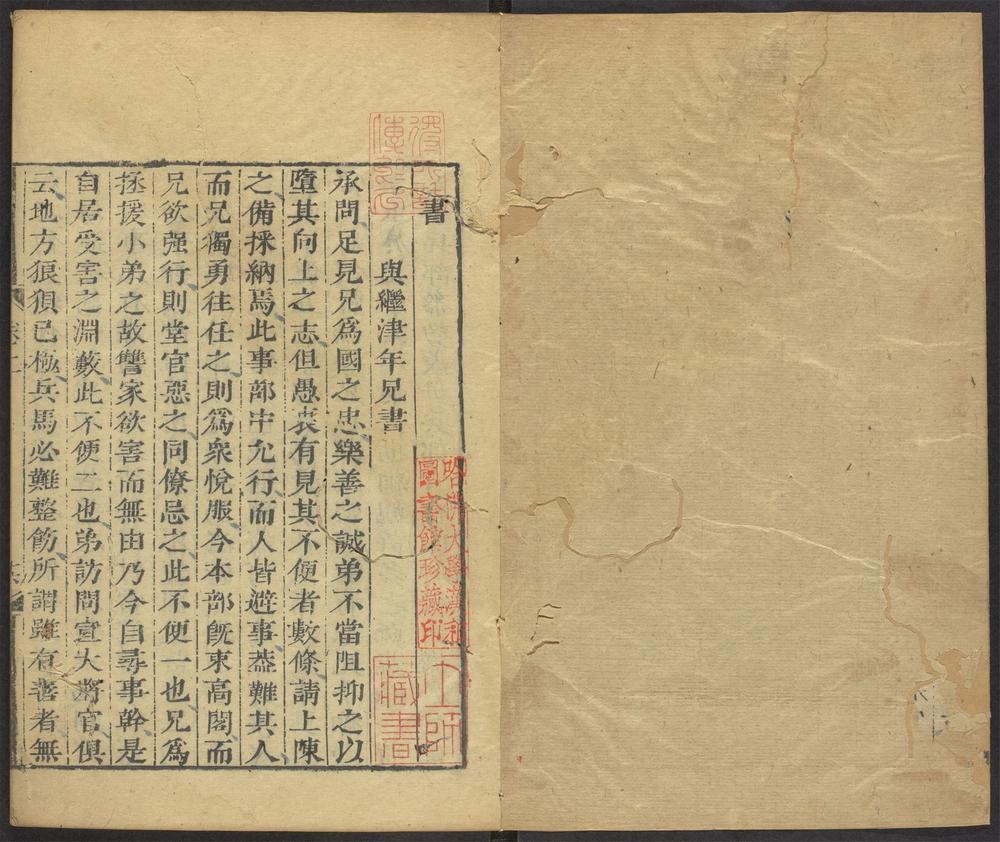 書
與繼津年兄書
承問足見兄爲國之忠樂善之誠弟不當阻抑之以
墮其向上之志但愚衷有見其不便者數條請上陳
之備採納焉此事部中允行而人皆避事葢難其人
而兄獨勇往任之則爲衆悅服今本部旣束高閣而
兄欲强行則堂官惡之同僚忌之此不便一也兄爲
拯援小弟之故讐家欲害而無由乃今自尋事幹是
自居受害之淵藪此不便二也弟訪問宣大將官俱
云地方狼狽已極兵馬必難整飭所謂雖有善者無
哈佛大學漢和
圖書館珍藏印
藏書